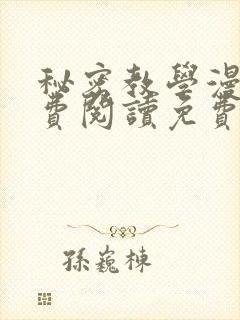 秘密教學漫
費閱讀免費
孫巍棟